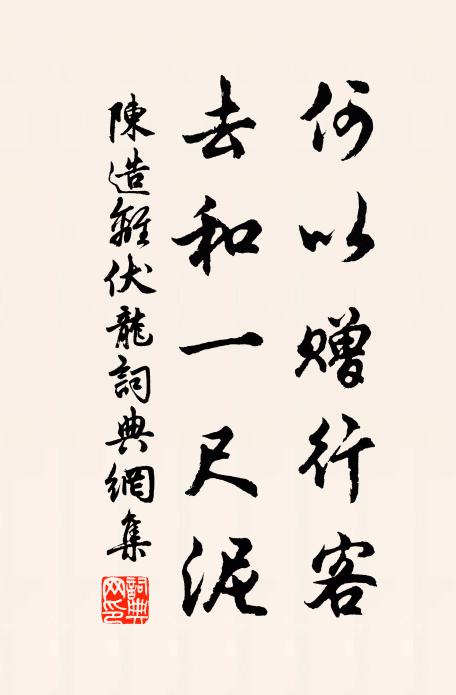 何以贈行客
去和一尺泥
陳造離伏龍詞典網集
詞典
网印